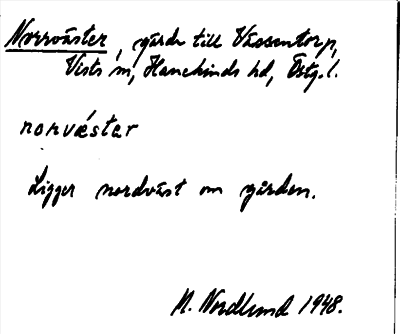 Norrväster, gärde till Vässentorp,
Vists sn, Hanekinds hd, Östg.l.
norvǽster
Ligger nordväst om gården.
N. Nordlund 1948.